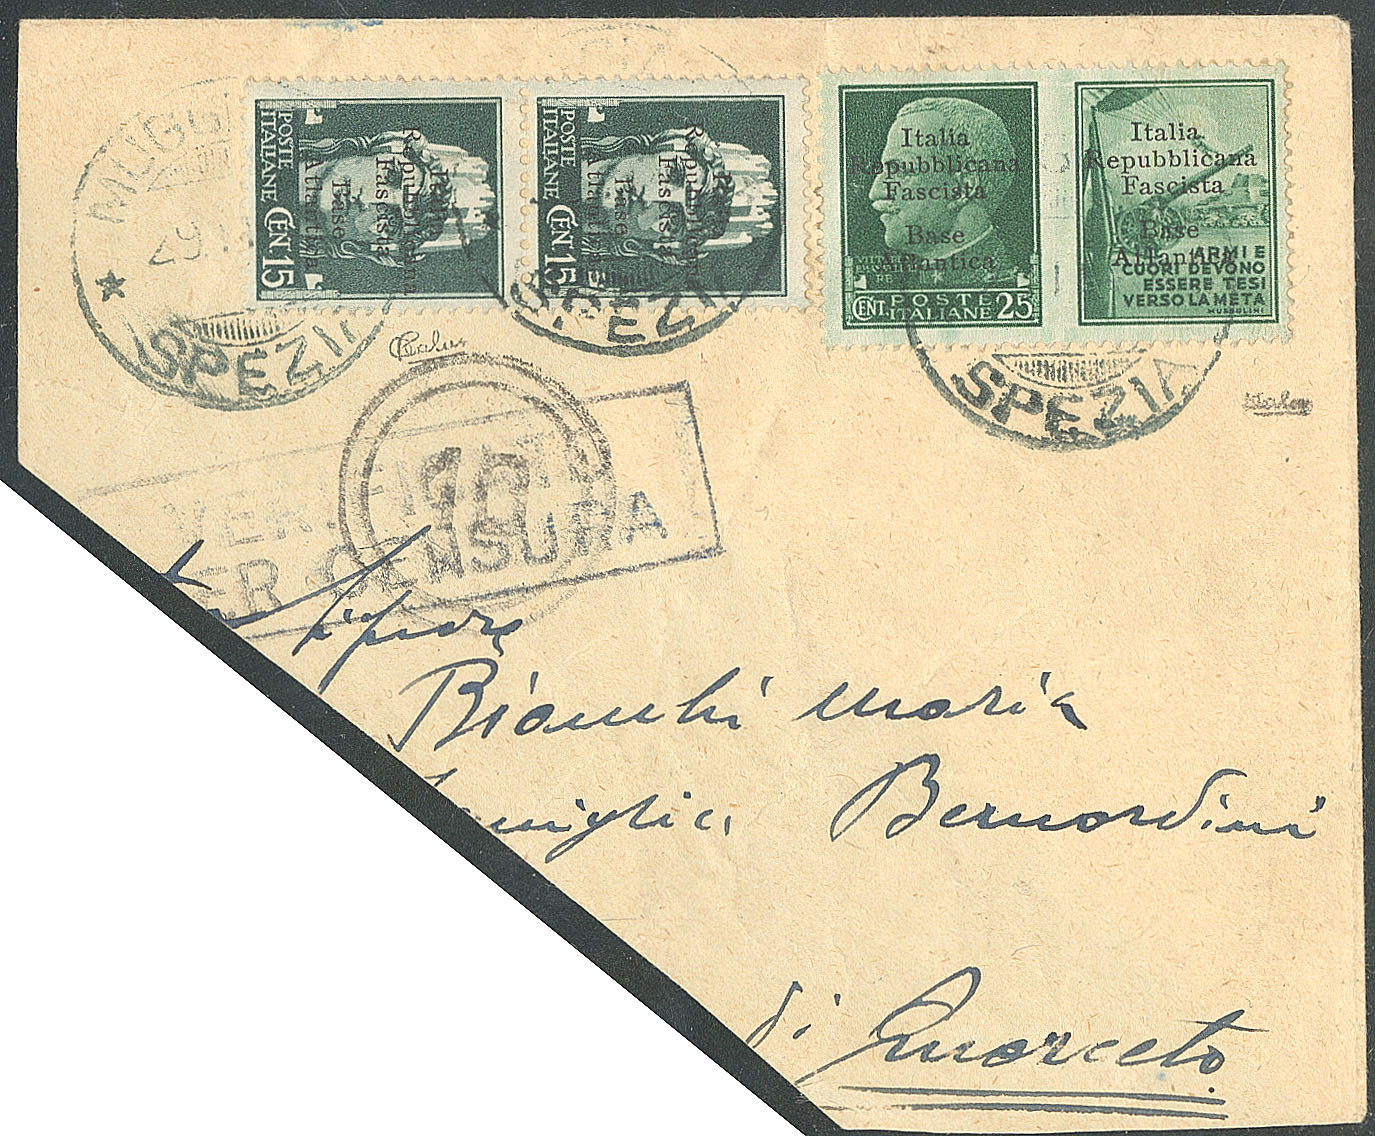 POSTE
ITALIANE
CEN 15
Italia
Repubblicana
Fascista
Base
Atlantica
POSTE
ITALIANE
CEN 15
Italia
Repubblicana
Fascista
Base
Atlantica
Italia
Repubblicana
Fascista
Base
Atlantica
CENT. POSTE
ITALIANE 25
Italia
Repubblicana
Fascista
Base
Atlantica
ARMI E
CUORI DEVONO
ESSERE TESI
VERSO LA META
MUSSOLINI
MUGGI
29
SPEZIA
SPEZIA
SPEZIA
VER
ER CENSURA
Bianchi Maria
Bernardini
di